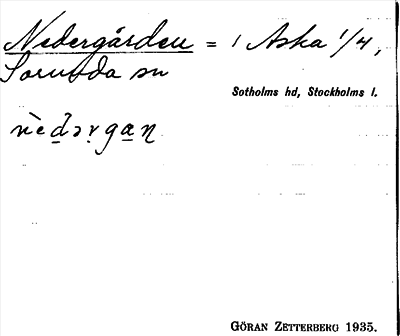 Nedergården = 1 Aska 1/4,
Sorunda sn
Sotholms hd, Stockholms l.
nèd̲ərga̲ṇ
GÖRAN ZETTERBERG 1935.